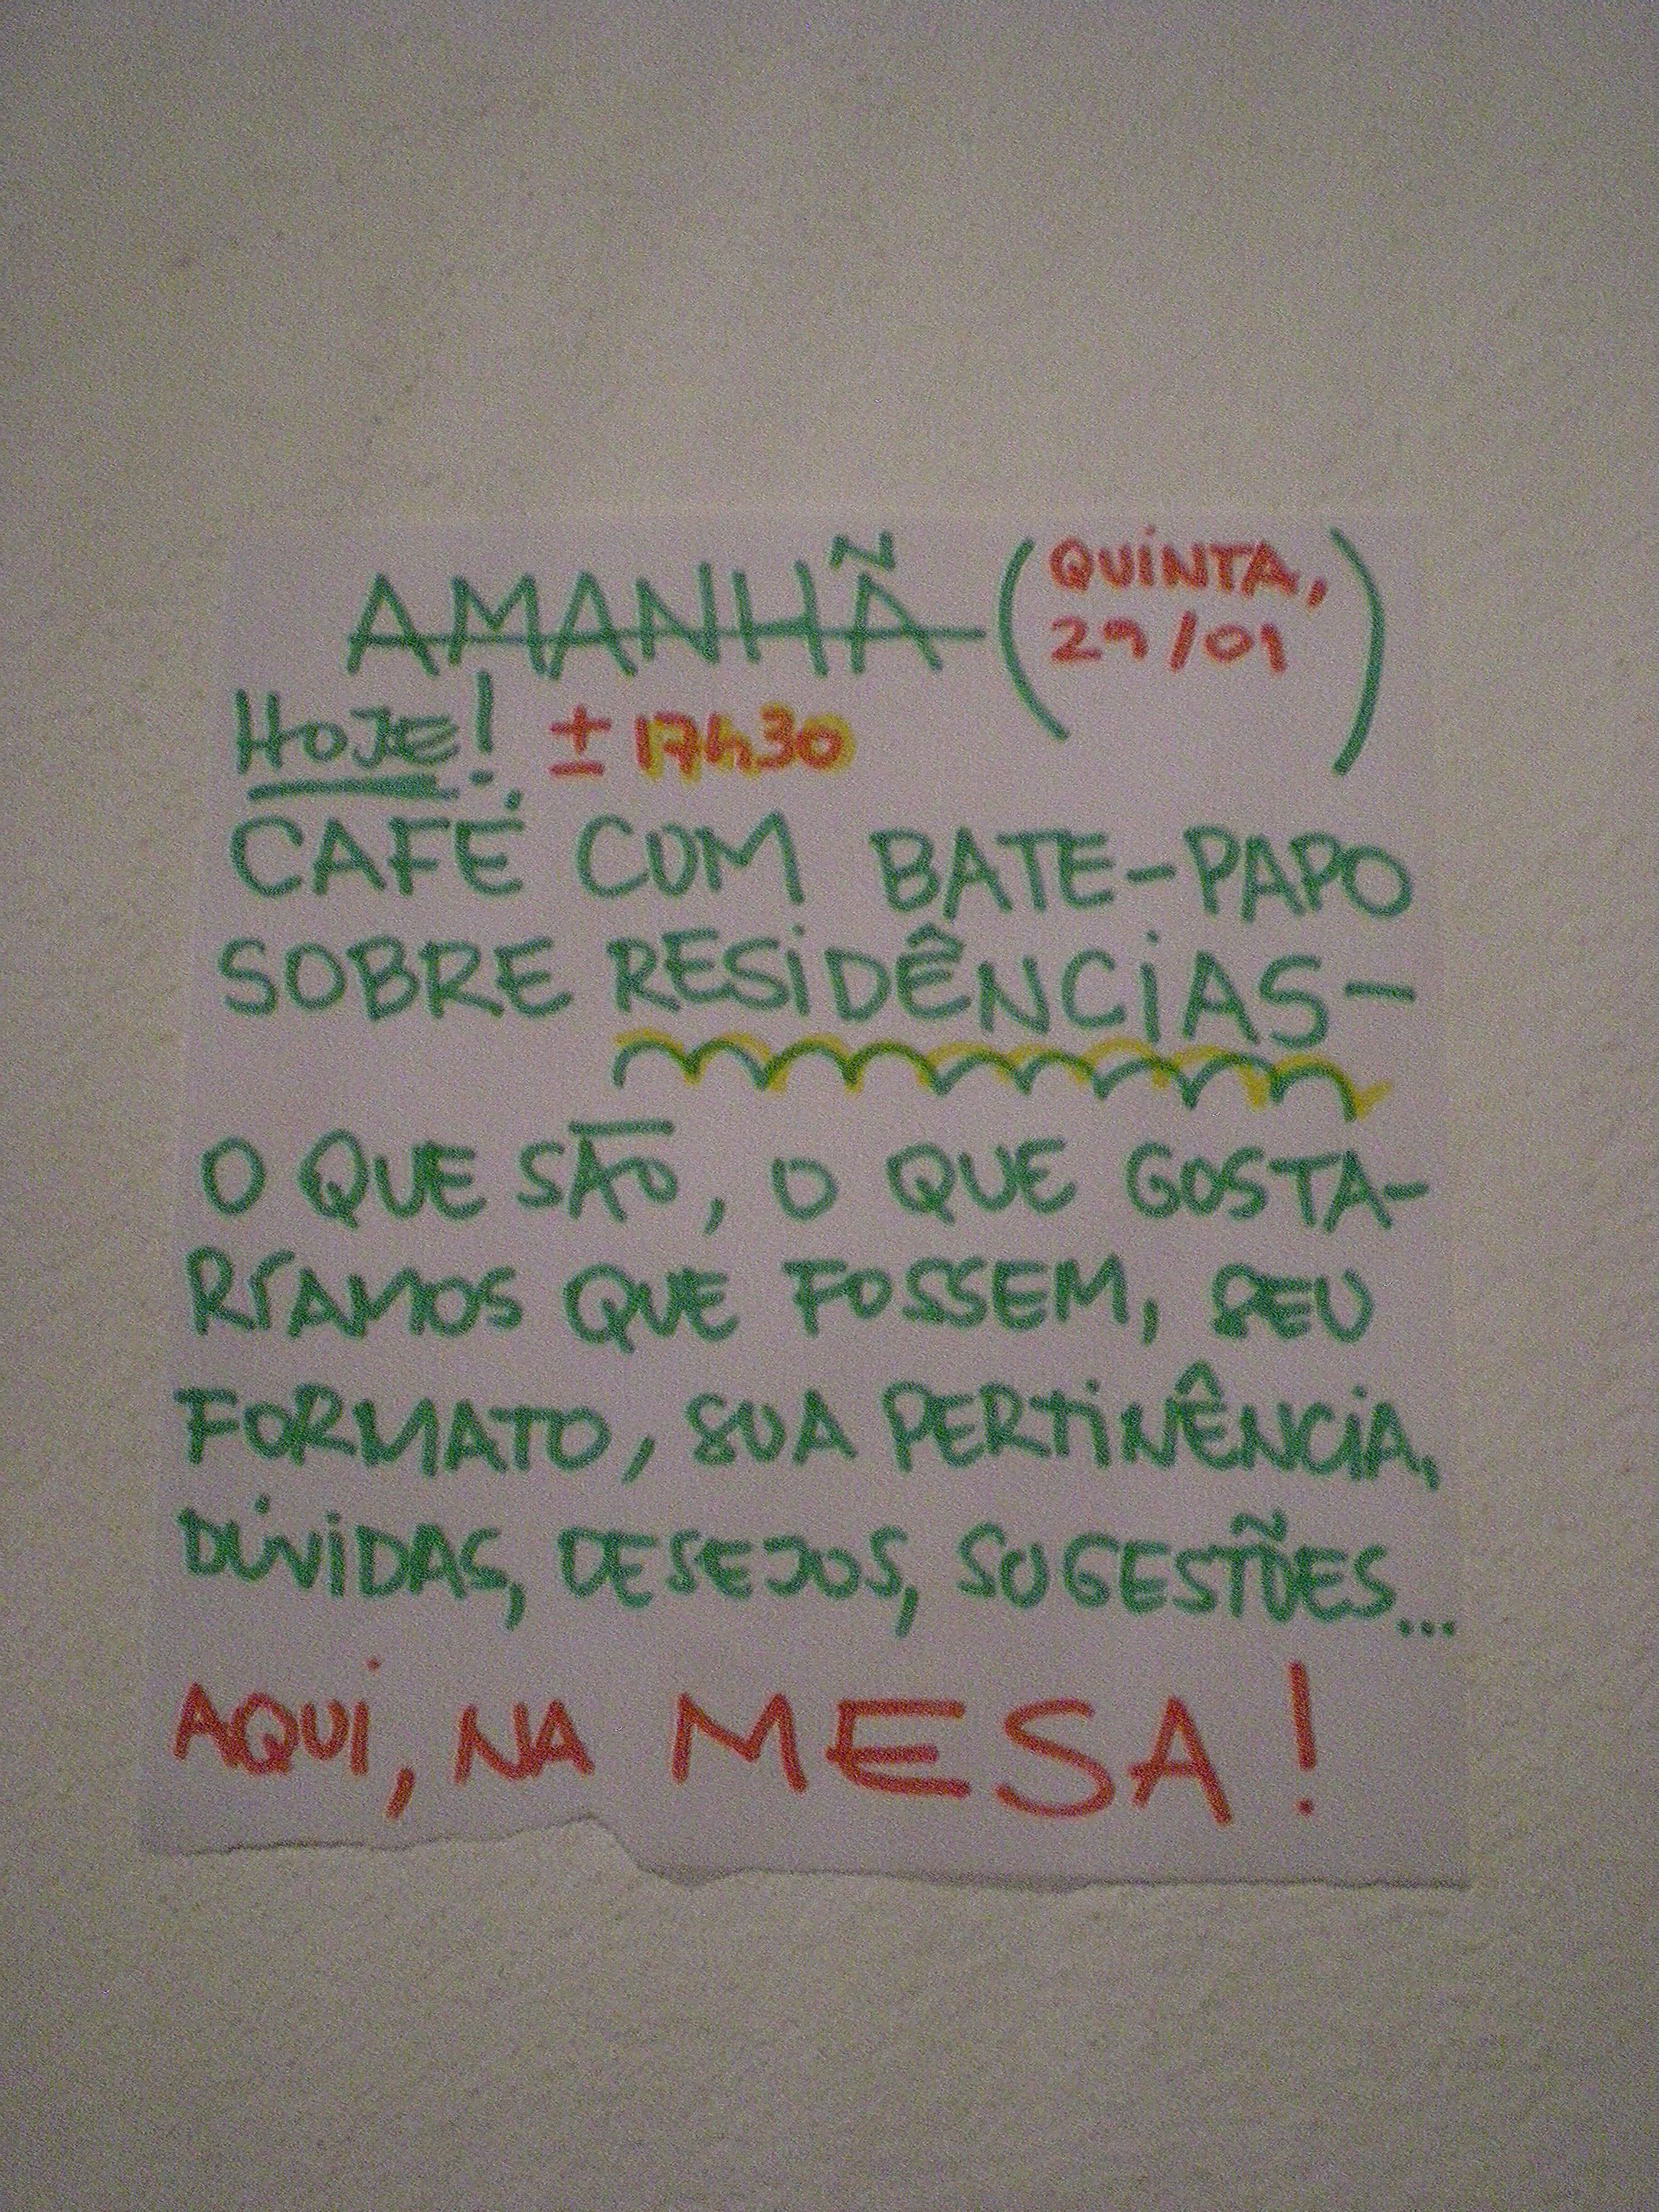 AMANHÃ (QUINTA, 29/01)
HOJE! ± 17h30
CAFÉ COM BATE-PAPO
SOBRE RESIDÊNCIAS-
O QUE SÃO, O QUE GOSTA-
RÍAMOS QUE FOSSEM, SEU
FORMATO, SUA PERTINÊNCIA,
DÚVIDAS, DESEJOS, SUGESTÕES...
AQUI, NA MESA!